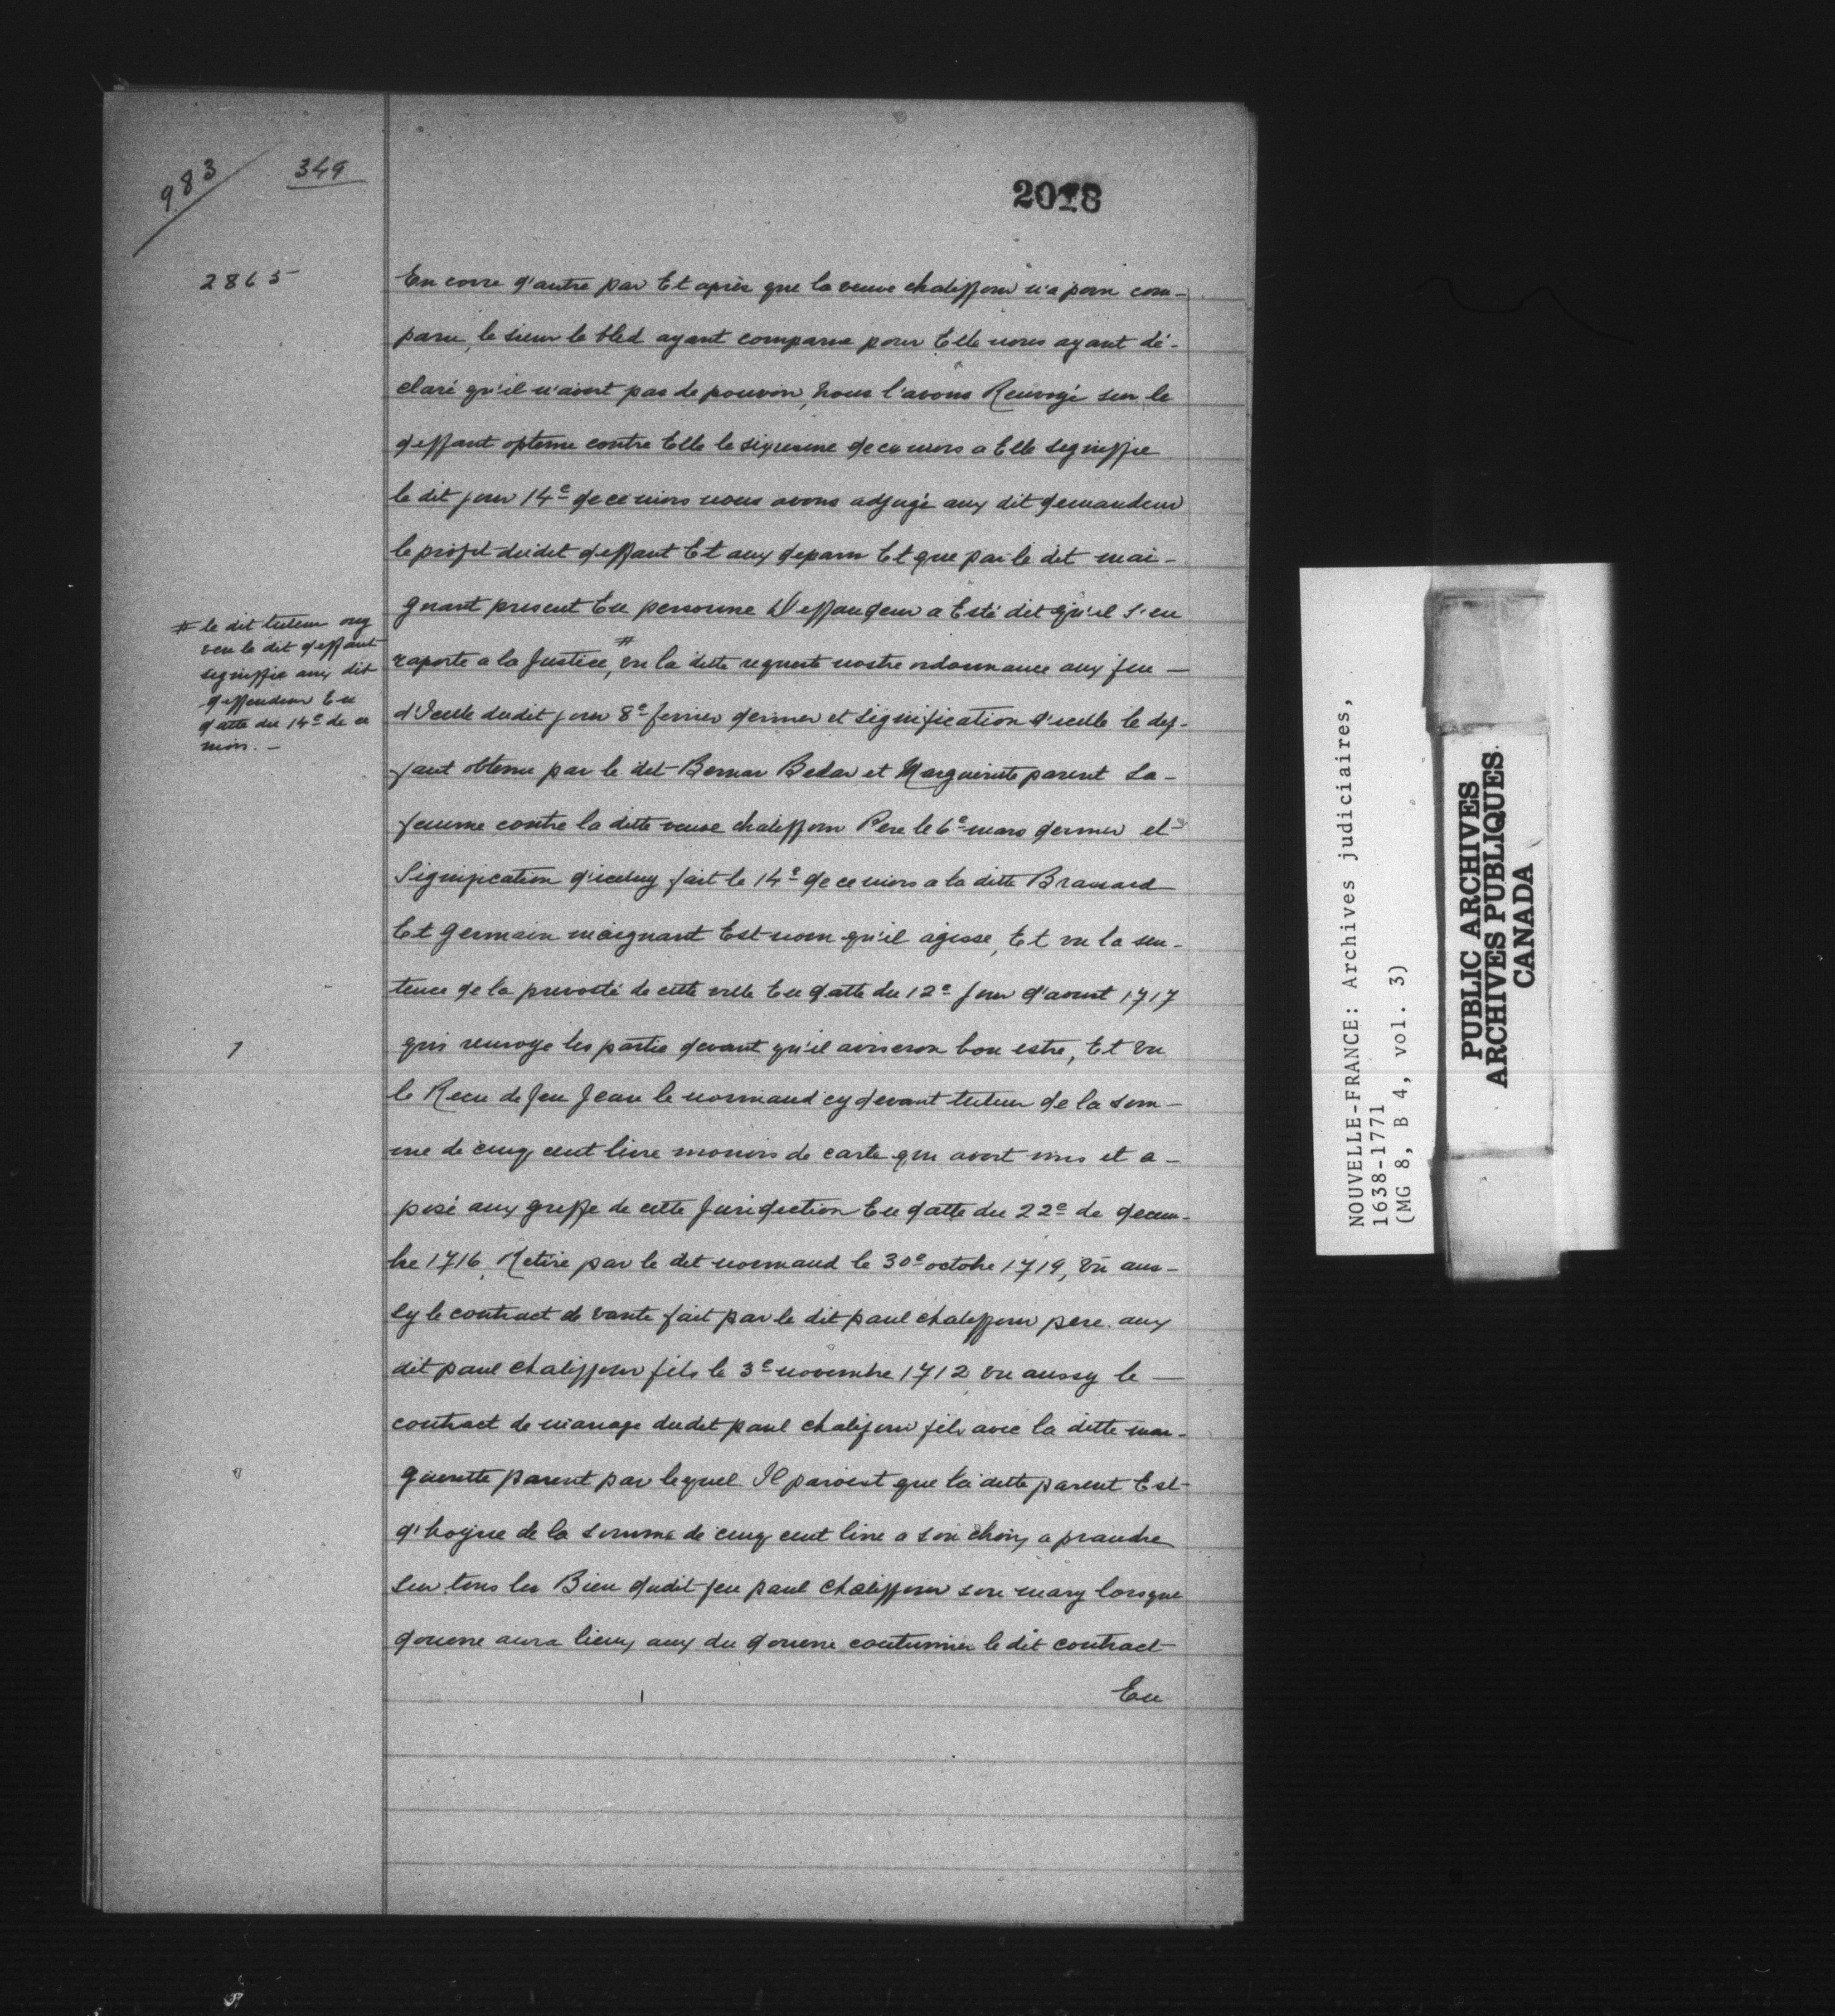 983 349
2018
2865
En corre d'autre par Et après que la veuve chaliffour n'a poin com-
paru, le sieur le bled ayant comparu pour Elle nous ayant dé-
claré qu'il n'avoit pas de pouvoir, nous l'avons Renvoyé sur le
deffaut optenu contre Elle le sixiesme de ce mois a Elle signiffie
le dit jour 14e de ce mois nous avons adjugé aux dit demandeur
le profit dudit deffaut Et aux depans Et que par le dit mai-
gnant present En personne Deffandeur a Esté dit qu'il s'en
raporte a la Justice, # vu la ditte requeste nostre ordonnance aux
d'Icelle dudit jour 8e fevrier dernier et signification d'icelle le def-
faut obtenu par le dit Bernar Bedar et Marguerite parent Sa-
femme contre la ditte veuve chaliffour Pere le 6e mars dernier et
Signification d'iceluy fait le 14e de ce mois a la ditte
Et Germain maignant Est nom qu'il agisse, Et vu la sen-
tence de la prevosté de cette ville En datte du 12e Jour d'aoust 1717
qui renvoye les partie devant qu'il aviseron bon estre, Et vu
le Recu de feu Jean le normand cy devant tuteur de la som-
me de cinq cent livre monois de carte que avoit mis et a-
posé aux greffe de cette Juridiction En datte du 22e de decem-
bre 1716, Retiré par le dit normand le 30e octobre 1719, vu aus-
sy le contract de vante fait par le dit paul chaliffour pere aux
dit paul chaliffour fils le 3e novembre 1712 vu aussy le
contract de mariage dudit paul chalifour fils avec la ditte mar-
gueritte parent par lequel Il paroist que la ditte parent Est
de la somme de cinq cent livre a son choix a prandre
sur tous les Bien dudit feu paul chaliffour son mary lorsque
douere aura lieux aux du douere coutumier le dit contract
En
# le dit tuteur ouy
veu le dit deffaut
signiffie aux dit
deffendeur En
datte du 14e de ce
mois. -
1
NOUVELLE-FRANCE: Archives judiciaires,
1638-1771
(MG 8, B 4, vol. 3)
PUBLIC ARCHIVES
ARCHIVES PUBLIQUES
CANADA